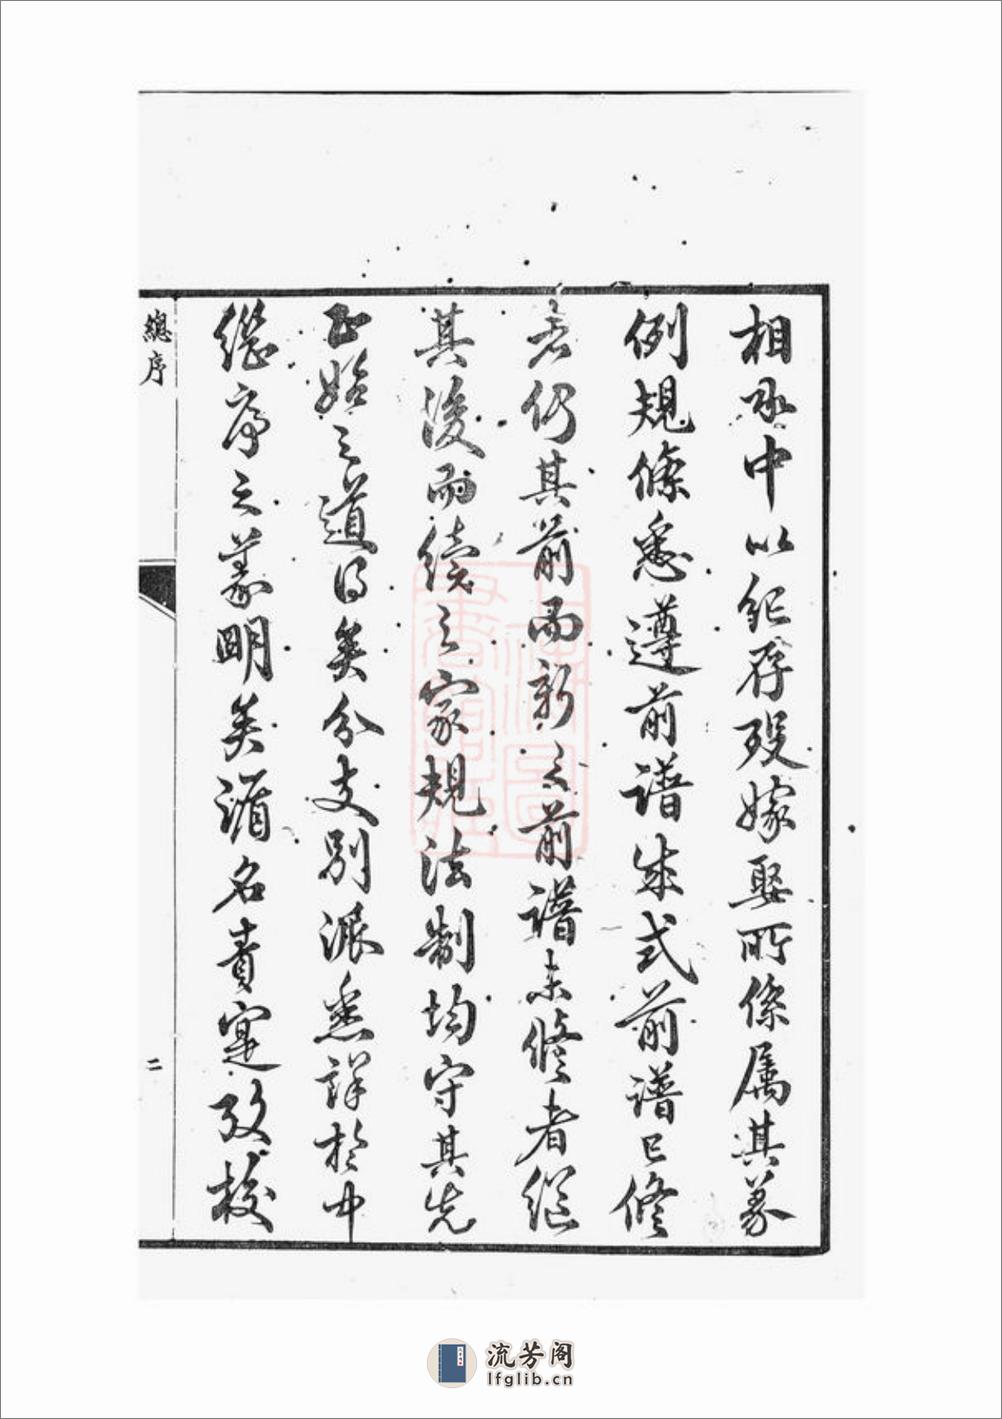 相承中以紀存歿嫁娶所係属其義
例規條悉遵前譜成式前譜已修
者仍其前而新之前譜未修者継
其後而續之家規法制均守其先
正始之道得矣分支別派悉詳於中
繼序之義明矣循名責寔攷校
總序
二
流芳阁
lfglib.cn